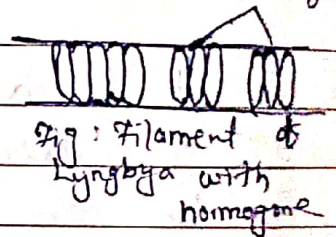 Fig : Filament of
Lyngbya with
hormogone